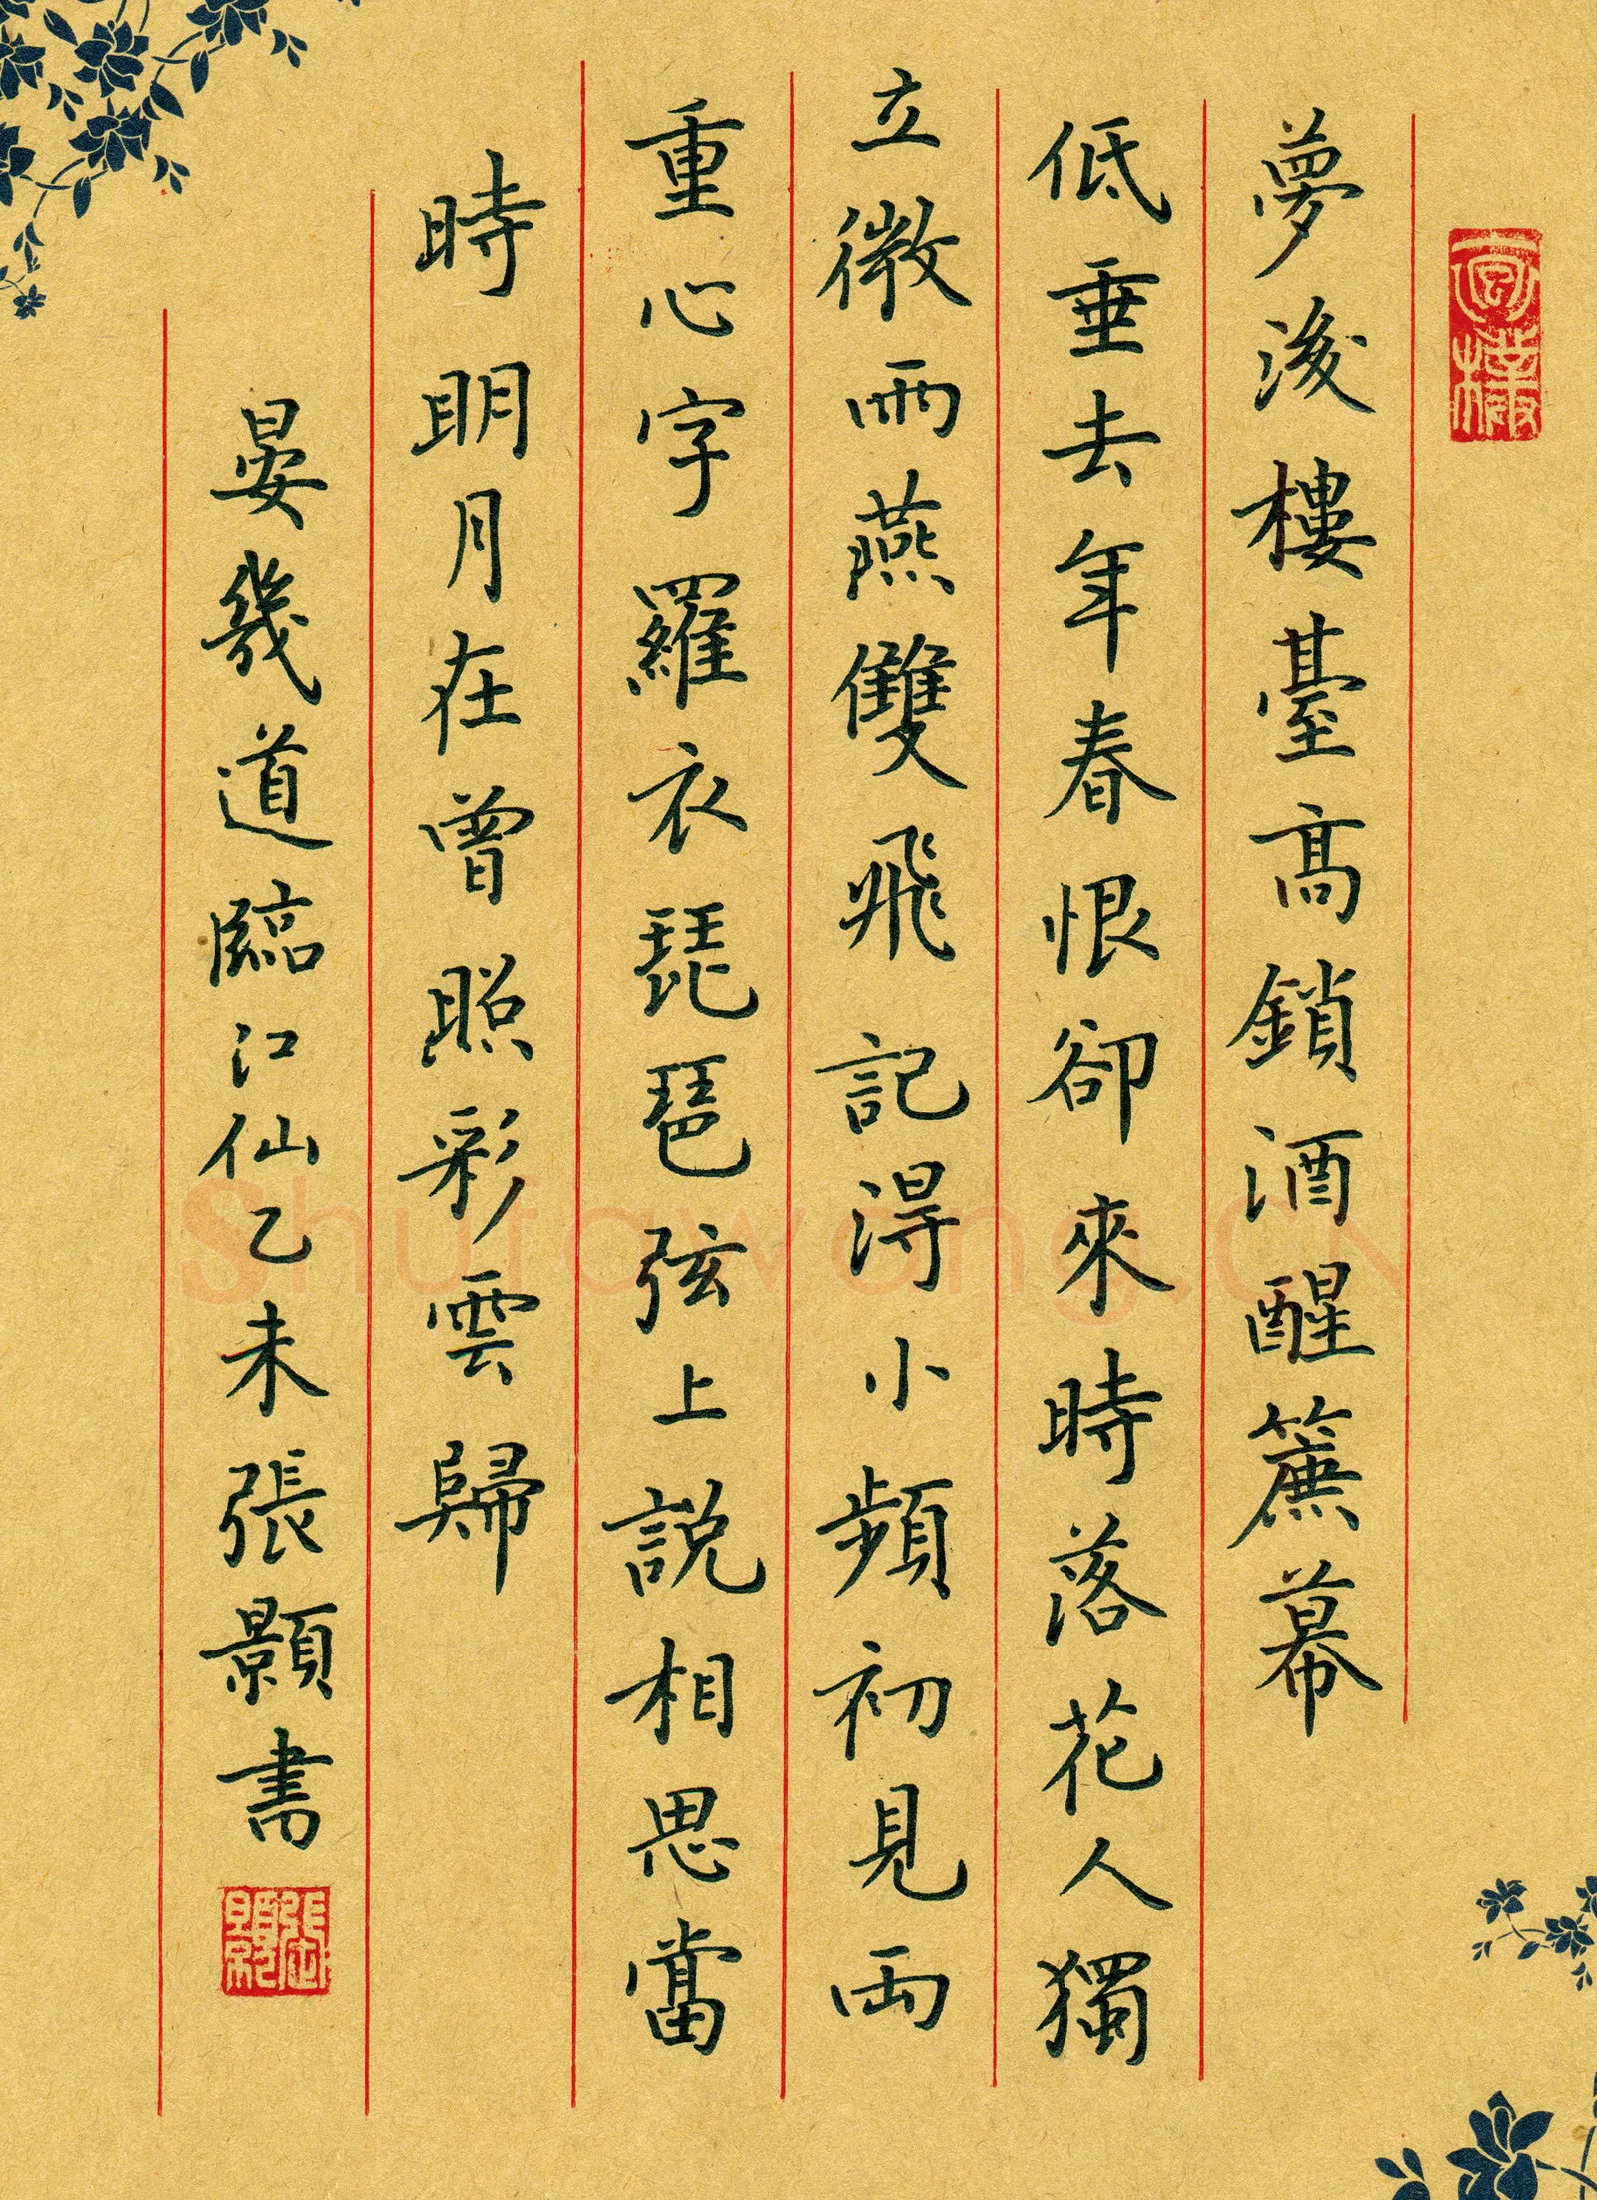 夢後樓臺高鎖酒醒簾幕
低垂去年春恨卻來時落花人獨
立微雨燕雙飛記得小蘋初見兩
重心字羅衣琵琶弦上說相思當
時明月在曾照彩雲歸
晏幾道臨江仙乙未張顥書
Shufawang.cn